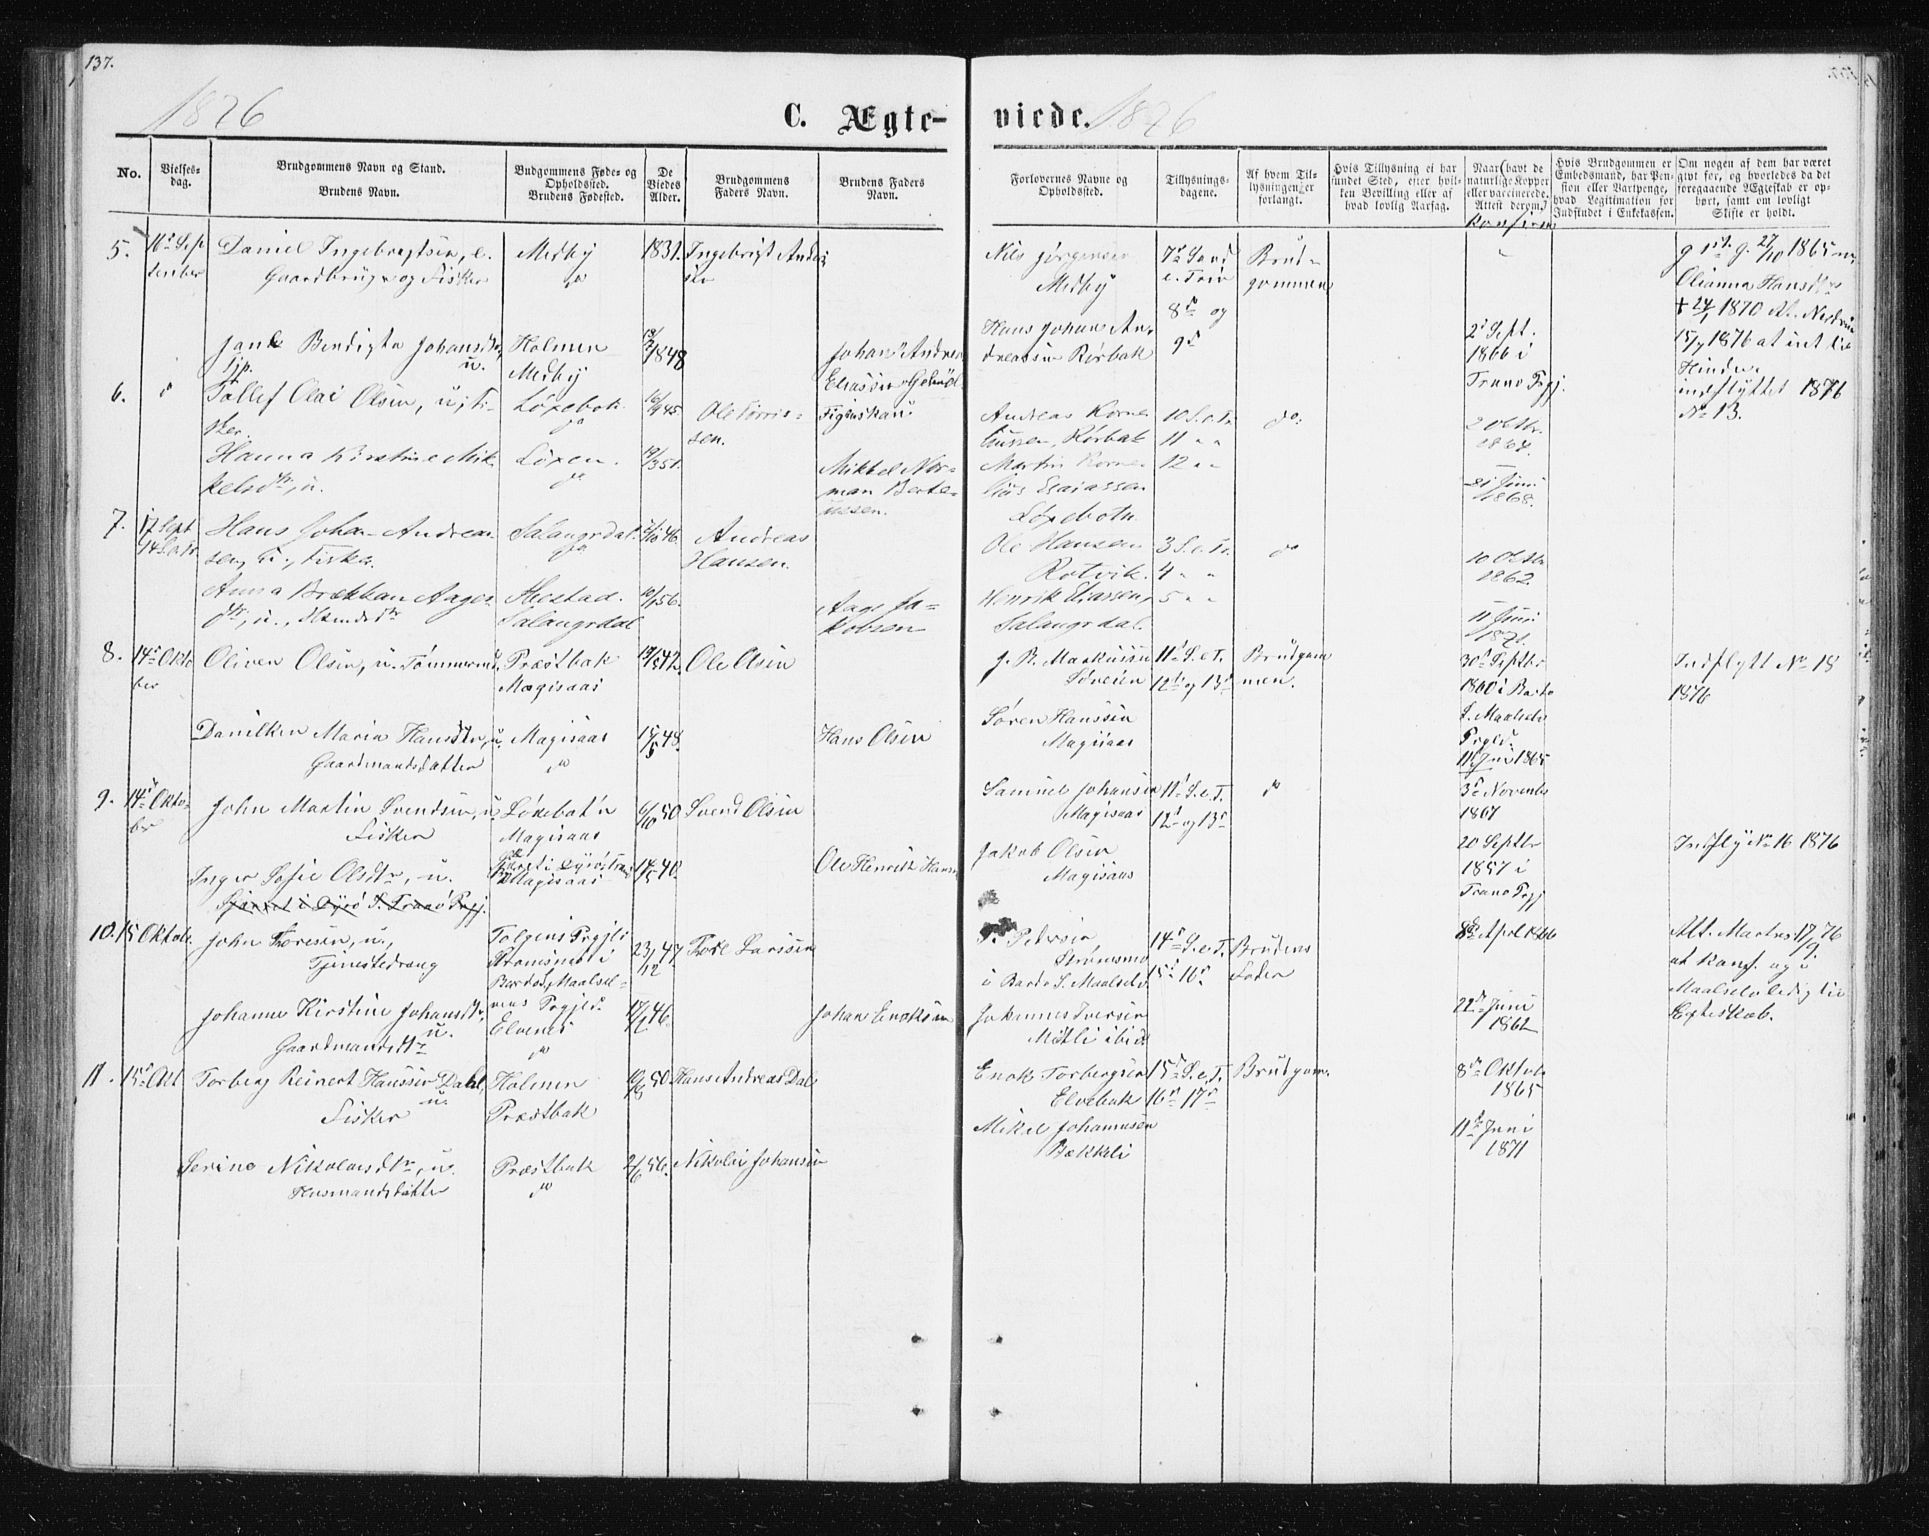 137.
1876
C. Ægte-
viede.
1876
No.
Vielses-
dag.
Brudgommens Navn og Stand.
Brudens Navn.
Budgommens Føde- og
Opholdssted.
Brudens Fødested.
De
Viedes
Alder.
Brudgommens
Faders Navn.
Brudens Faders
Navn.
Forlovernes Navne og
Opholdssted.
Tillysnings-
dagene.
Af hvem Til-
lysningen er
forlangt.
Hvis Tillysning ei har
fundet Sted, efter hvil-
ken Bevilling eller af
hvad lovlig Aarsag.
Naar (havt de
naturlige Kopper
eller vaccinerede.
Attest derom.)
Konfirm
Hvis Brudgommen er
Embedsmand, har Pen-
sion eller Vartpenge,
hvad Legitimation for
Indskud i Enkekassen.
Om nogen af dem har været
givt før, og hvorledes da det
foregaaende Ægteskab er op-
hørt, samt om lovligt
Skifte er holdt.
5.
16de Sep
tember
Daniel Ingebrigtsen, e.
Gaardbruger og Fisker
Medby
do
1831.
Ingebrigt Ander
sen
Nils Jørgensen
Medby
7de Sønd
e. Trin
8de og
9de
Brud-
gommen
g 1ste g. 27/10 1865 m.
Olianna Hansdtr
1870
Bendigte Johansdtr,
u.
Holmen
Medby
1848
Johan Andreas
Eliassen
Hans Johan An-
dreassen Rørbak
2de Sept.
1866 i
Tranø Prgj.
15/7 1876 at int. lov
Hinder
indflyttet 1876
No 13.
6.
do
Tollef Olai Olsen, u, fi-
sker.
Løxebot.
do
16/9 45
Ole Törris-
sen.
Andreas Korne-
liussen, Rørbak
10 S. e. Tr.
11 " "
do
2 Oktbr.
1864.
Hanna Kirstine Mik-
kelsdtr, u.
Løxen.
do
19/3 51.
Mikkel Nor-
man Berte-
ussen.
Martin Korne-
lius Esaiassen
Løxebotn.
12 " "
21 Juni
1868.
7.
17 Sept
14 S. e. Tr.
Hans Johan Andreas-
sen, u., fisker.
Salangsdal.
do
46.
Andreas
Hansen.
Ole Hansen
Rotvik.
3 S. e. Tr.
4 " "
do
10 Oktbr
1862
Anna Brækkan Aages-
dtr, u., Husmdsdtr
Salangsdal
56.
Aage Ja-
kobsen
Henrik Eliassen,
Salangsdal.
5 " "
11 Juni
1871.
8.
14de Okto
ber
Oliver Olsen, u. Tømmermd.
Præstbak
Magisaas
42.
Ole Olsen
J. B. Markussen
11te S. e. T.
12te og 13de
Brudgom
men.
30de Septbr
1860 i Bardo
S. Maalselv
Prgld.
Indflytt No 18
1876
Danilken Maria Hansdtr, u.
Gaardmandsdatter
Magisaas
do
15/5 48.
Hans Olsen
Søren Hanssen
Magisaas
11te Juni 1865
9.
14de Okto-
ber
John Martin Svendsen, u.
Fisker
Løxebotn
Magisaas
6/10 50
Svend Olsen
Samuel Johansen
Magisaas
11te S. e. T.
12te og 13de
do
3de Novembr
1867
Inger Sofie Olsdtr, u.
Magisaas
14/5 40.
Ole Henrik Hansen
Jakob Olsen
Magisaas
20 Septbr
1857 i
Tranø Prgj
Indfly No 16 1876
10.
15 Oktob.
John Toresen, u.,
Tjenestedreng
Tolgens Prgjld
Strømsmo i
Bardo S. Maalsel-
vens Prgjld.
23/12 47
Tore Larssen
P. Pedersen
Strømsmo
i Bardo S. Maalselv
14de S. e. T.
15de 16de
Brudens
Fader
8de April 1866
Att. Maalselv 17/9 76
at konf. og i
Maalselv ledig til
Egteskab.
Johanna Kirstine Johansdtr,
u.
Gaardmandsdtr
Elvenes
do
46.
Johan Enoksen
Johannes Iversen
Midtli ibid
22de Juni
1862
11.
15de Okt
Torberg Reinert Hanssen Dahl,
u.
Fisker
Holmen
Præstbak
50.
Hans Andreas Dal
Enok Torbergsen
Elvebak
15de S. e. T.
16de 17de
Brudgom.
8de Oktob
1865
Serine Nikolaisdtr, u.
Husmandsdatter
Præstbak
do
2/6 56.
Nikolai Johansen
Mikel Johannesen
Bækkeli
11te Juni
1871